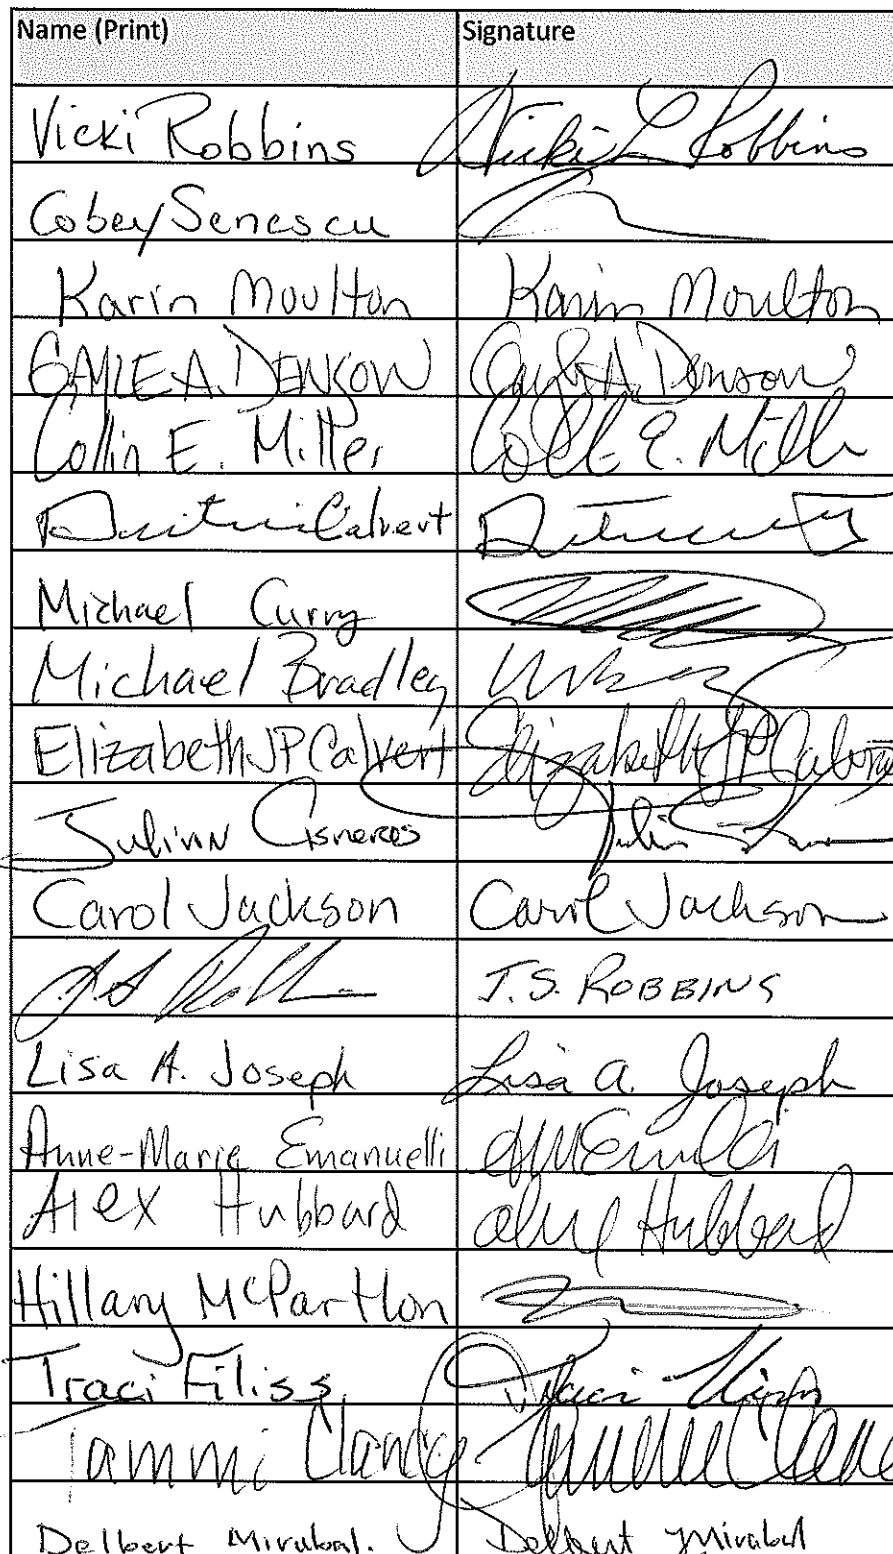 Name (Print) Signature
Vicki Robbins Vicki L Robbins
Cobey Senescu
Karin Moulton Karin Moulton
GAYLE A. DENSOW Gayle A. Denson
Collin E. Miller Coll E. Mill
Calvert
Michael Curry
Michael Bradley
Elizabeth JP Calvert Elizabeth JP Calvert
Julian Cisneros Julian
Carol Jackson Carol Jackson
J.S. ROBBINS
Lisa A. Joseph Lisa A. Joseph
Anne-Marie Emanuelli AMEmanuelli
Alex Hubbard Alex Hubbard
Hillary McPartlon
Traci Filiss Traci Filiss
Tammi Clancy
Delbert Mirabal. Delbert Mirabal